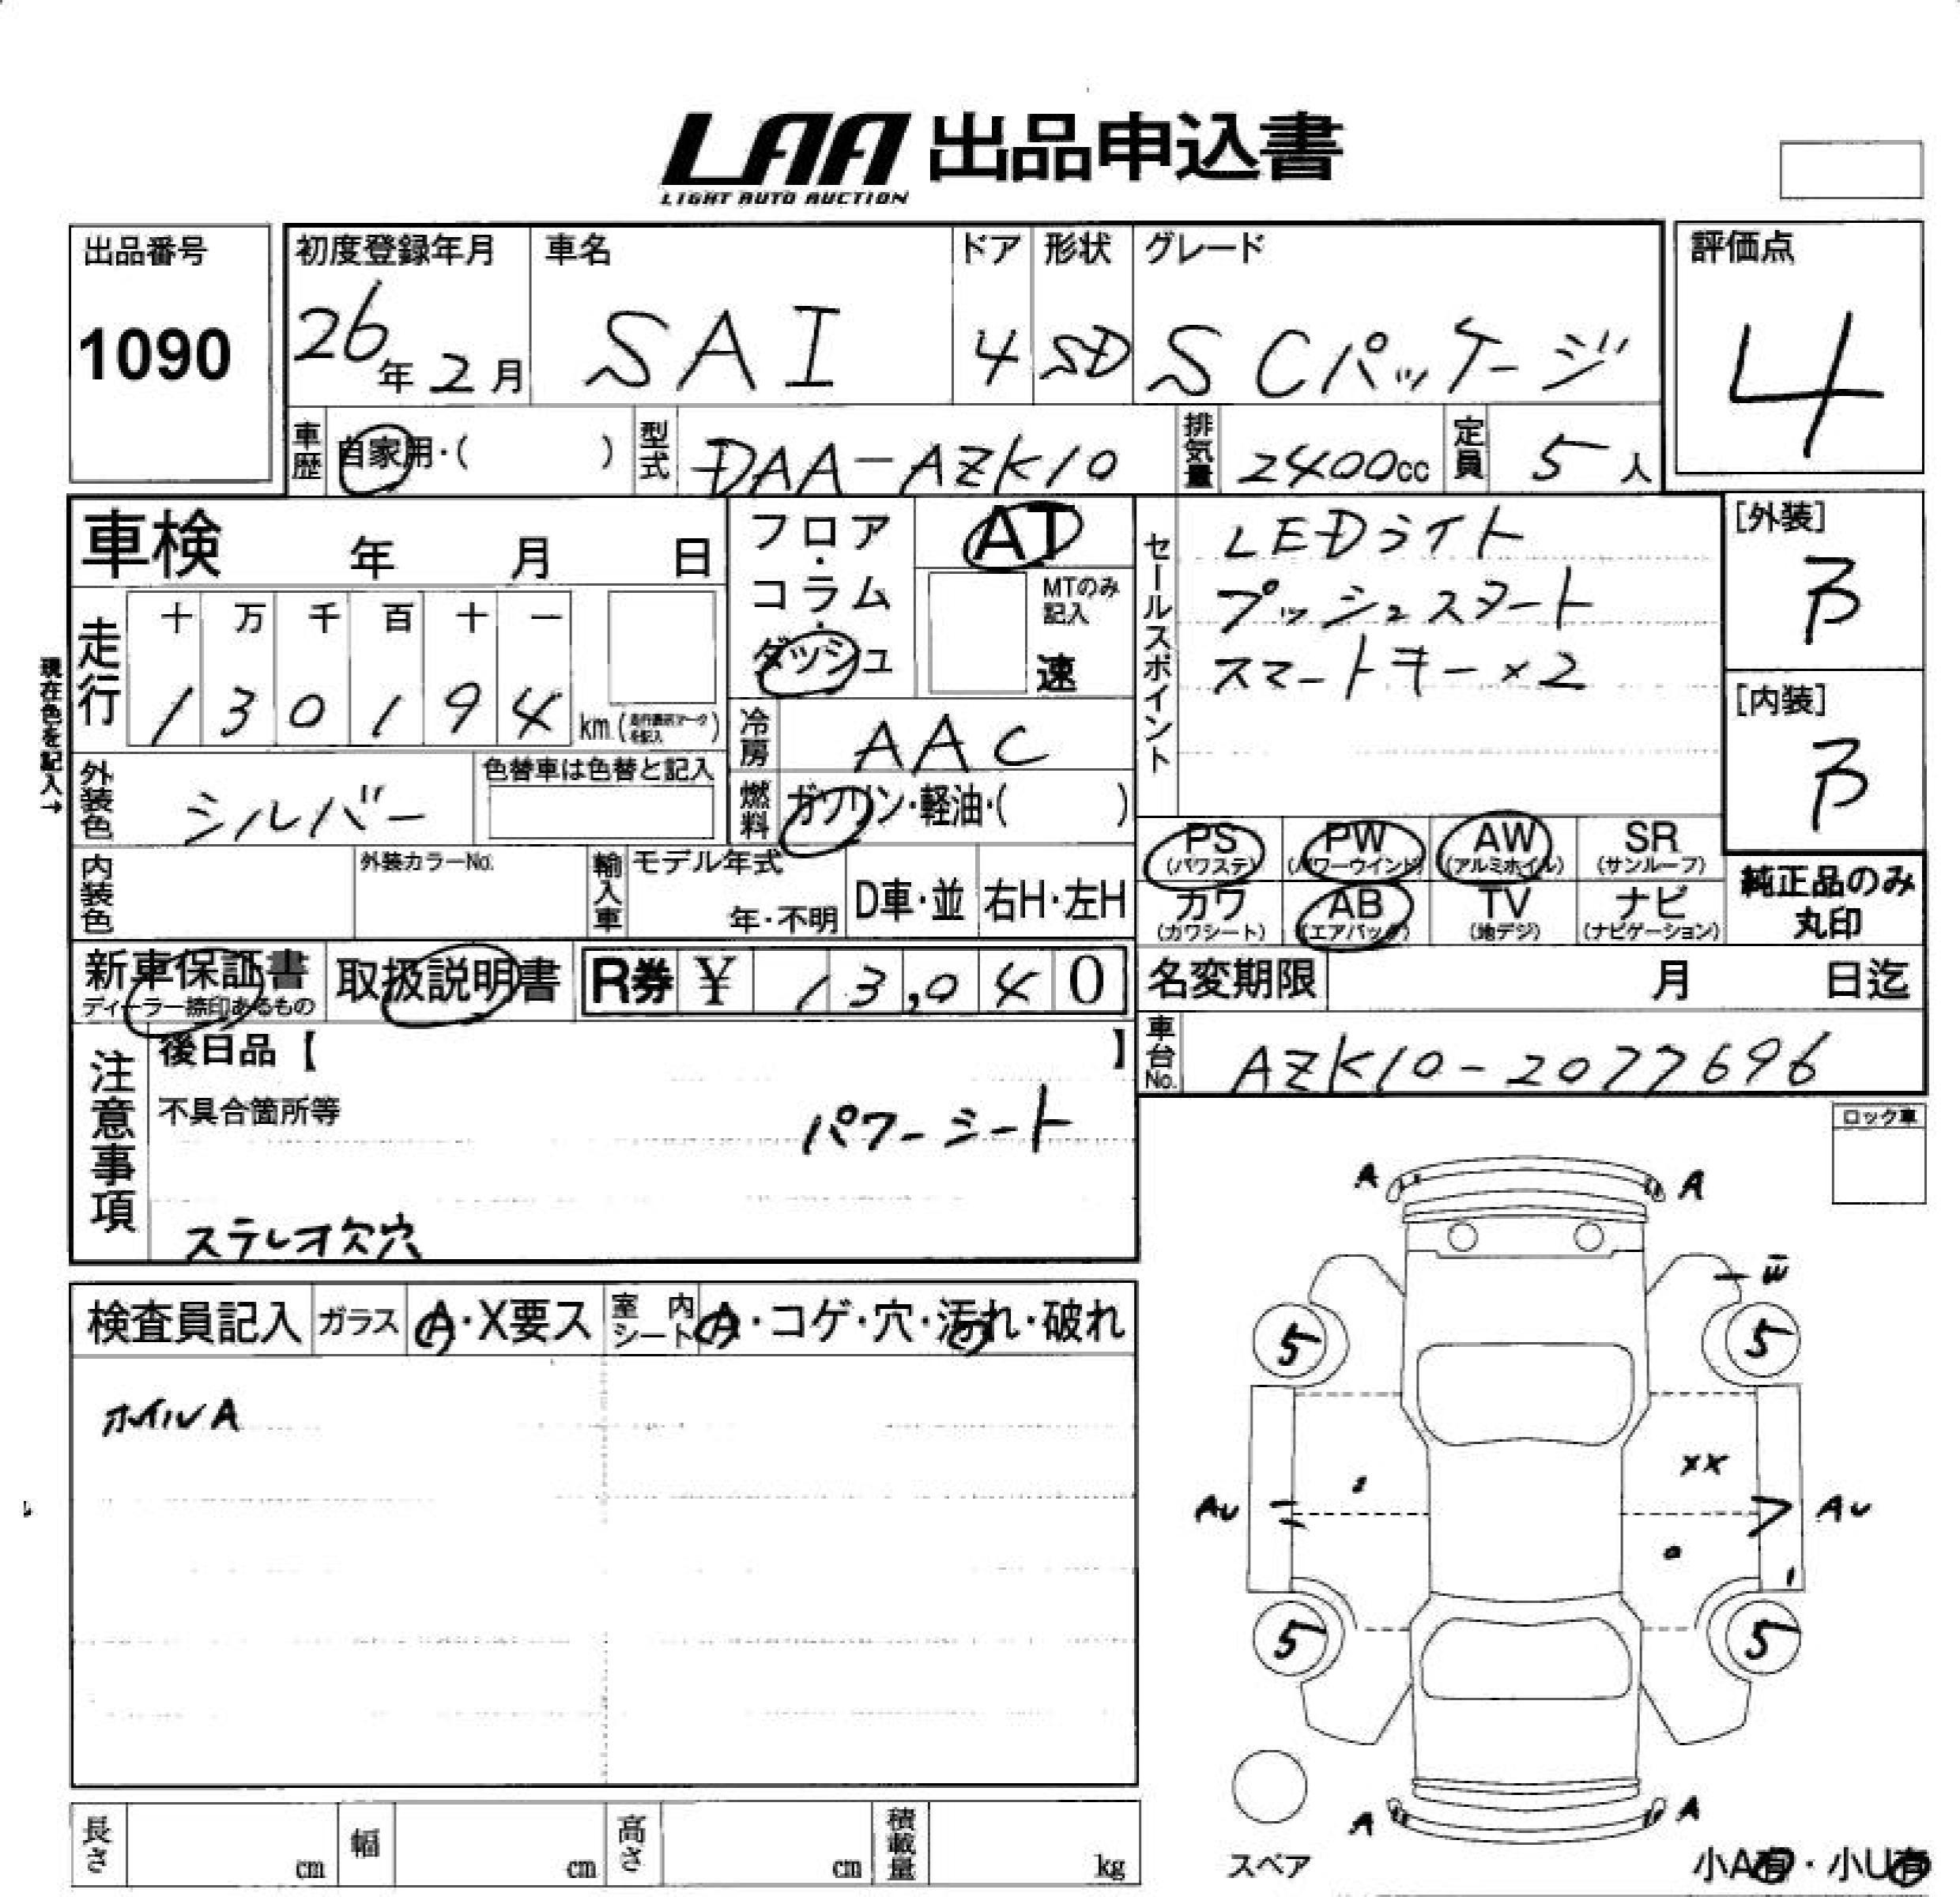 LAA 出品申込書
LIGHT AUTO AUCTION
出品番号
1090
初度登録年月
26年2月
車名
SAI
ドア
4
形状
SD
グレード
SCパッケージ
評価点
4
車歴 自家用・( )
型式 DAA-AZK10
排気量 2400cc
定員 5人
車検 年 月 日
フロア・コラム・ダッシュ
AT
MTのみ記入
速
セールスポイント
LEDライト
プッシュスタート
スマートキー×2
[外装]
B
[内装]
B
現在色を記入→
走行
十 万 千 百 十 一
1 3 0 1 9 4 km (走行表示マークを記入)
冷房 AAC
外装色 シルバー
色替車は色替と記入
燃料 ガソリン・軽油・( )
PS (パワステ) PW (パワーウインド) AW (アルミホイル) SR (サンルーフ)
カワ (カワシート) AB (エアバック) TV (地デジ) ナビ (ナビゲーション)
純正品のみ
丸印
内装色
外装カラーNo.
輸入車 モデル年式
年・不明
D車・並
右H・左H
新車保証書
ディーラー捺印あるもの
取扱説明書
R券 ¥ 13,040
名変期限 月 日迄
車台No. AZK10-2077696
注意事項
後日品【 】
不具合箇所等
パワーシート
ステレオ欠穴
ロック車
A A
検査員記入 ガラス A・X要ス 室内シート A・コゲ・穴・汚れ・破れ
ホイルA
5 5
XX
AU AU
5 5
A A
スペア
小A有・小U有
長さ cm 幅 cm 高さ cm 積載量 kg